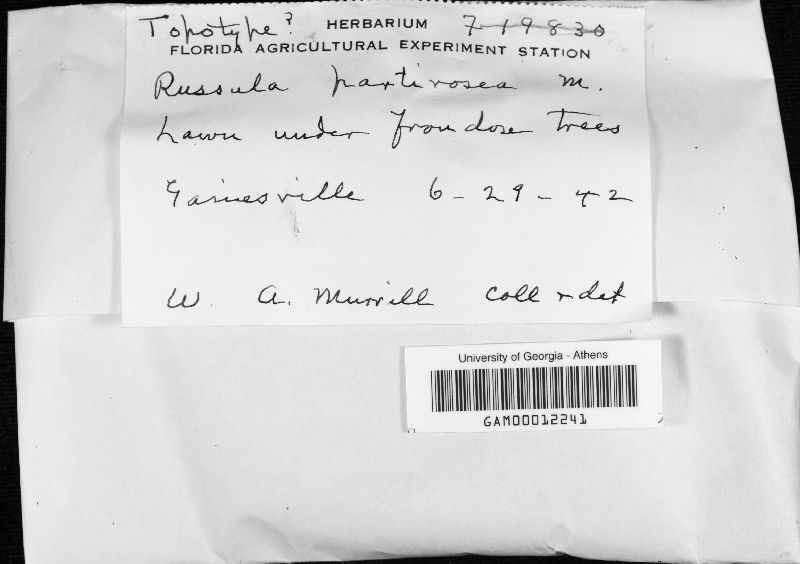 Topotype? HERBARIUM 7 19830
FLORIDA AGRICULTURAL EXPERIMENT STATION
Russula partirosea M.
Lawn under frondose trees
Gainesville 6-29-42
W. A. Murrill coll & det
University of Georgia - Athens
GAM00012241